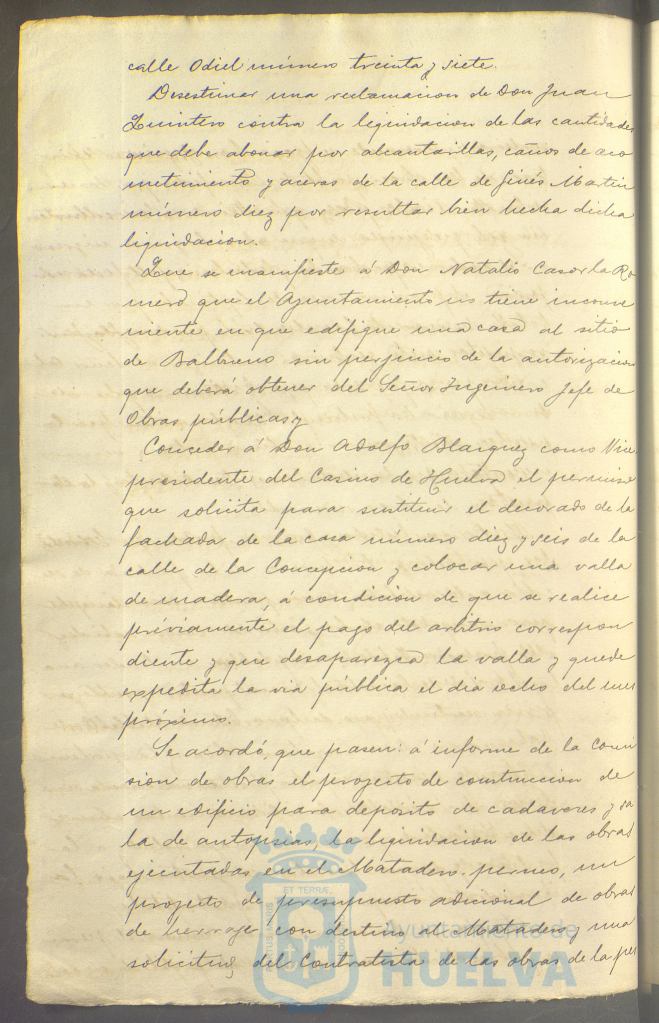 calle Odiel número treinta y siete.
Desestimar una reclamacion de Don Juan
Quintero contra la liquidacion de las cantidades
que debe abonar por alcantarillas, caños de aco
metimiento y aceras de la calle de Ginés Martin
número diez por resultar bien hecha dicha
liquidacion.
Que se manifieste á Don Natalio Casorla Ro
mero que el Ayuntamiento no tiene inconve
niente en que edifique una casa al sitio
de Balbueno sin perjuicio de la autorizacion
que deberá obtener del Señor Ingeniero Jefe de
Obras públicas y
Conceder á Don Adolfo Blazquez como Vice
presidente del Casino de Huelva el permiso
que solicita para sustituir el decorado de la
fachada de la casa número diez y seis de la
calle de la Concepcion y colocar una valla
de madera, á condición de que se realice
préviamente el pago del arbitrio correspon
diente y que desaparezca la valla y quede
expedita la via pública el dia ocho del mes
próximo.
Se acordó, que pasen: á informe de la Comi
sion de obras el proyecto de construccion de
un edificio para depósito de cadaveres y sa
la de autopsias, la liquidacion de las obras
ejecutadas en el Matadero perneo, un
proyecto de presupuesto adicional de obras
de herraje con destino al Matadero y una
solicitud del Contratista de las obras de la
ET TERRÆ
Ayuntamiento de
HUELVA